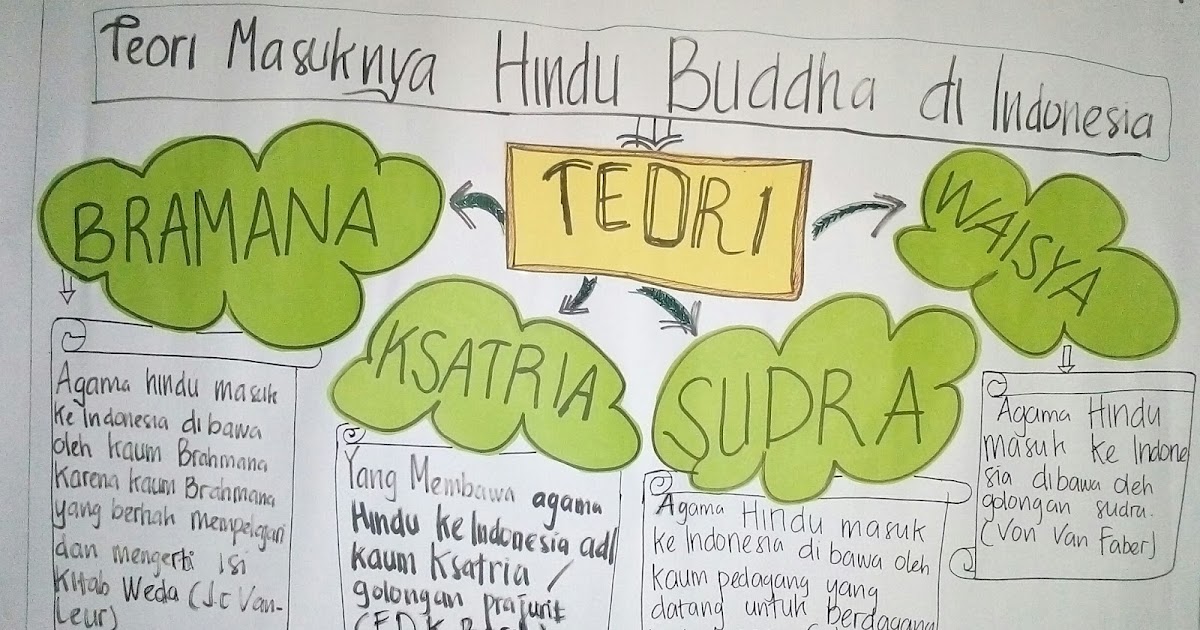 Teori Masuknya Hindu Buddha di Indonesia
TEORI
BRAMANA
Agama hindu masuk
ke Indonesia dibawa
oleh kaum Brahmana
Karena kaum Brahmana
yang berhak mempelajari
dan mengerti isi
Kitab Weda (J.C Van-
Leur)
KSATRIA
Yang Membawa agama
Hindu ke Indonesia adl
kaum Ksatria /
golongan prajurit
SUDRA
Agama Hindu masuk
ke Indonesia di bawa oleh
kaum pedagang yang
datang untuk berdagang
WAISYA
Agama Hindu
masuk ke Indone
sia dibawa oleh
golongan sudra.
(Von Van Faber)